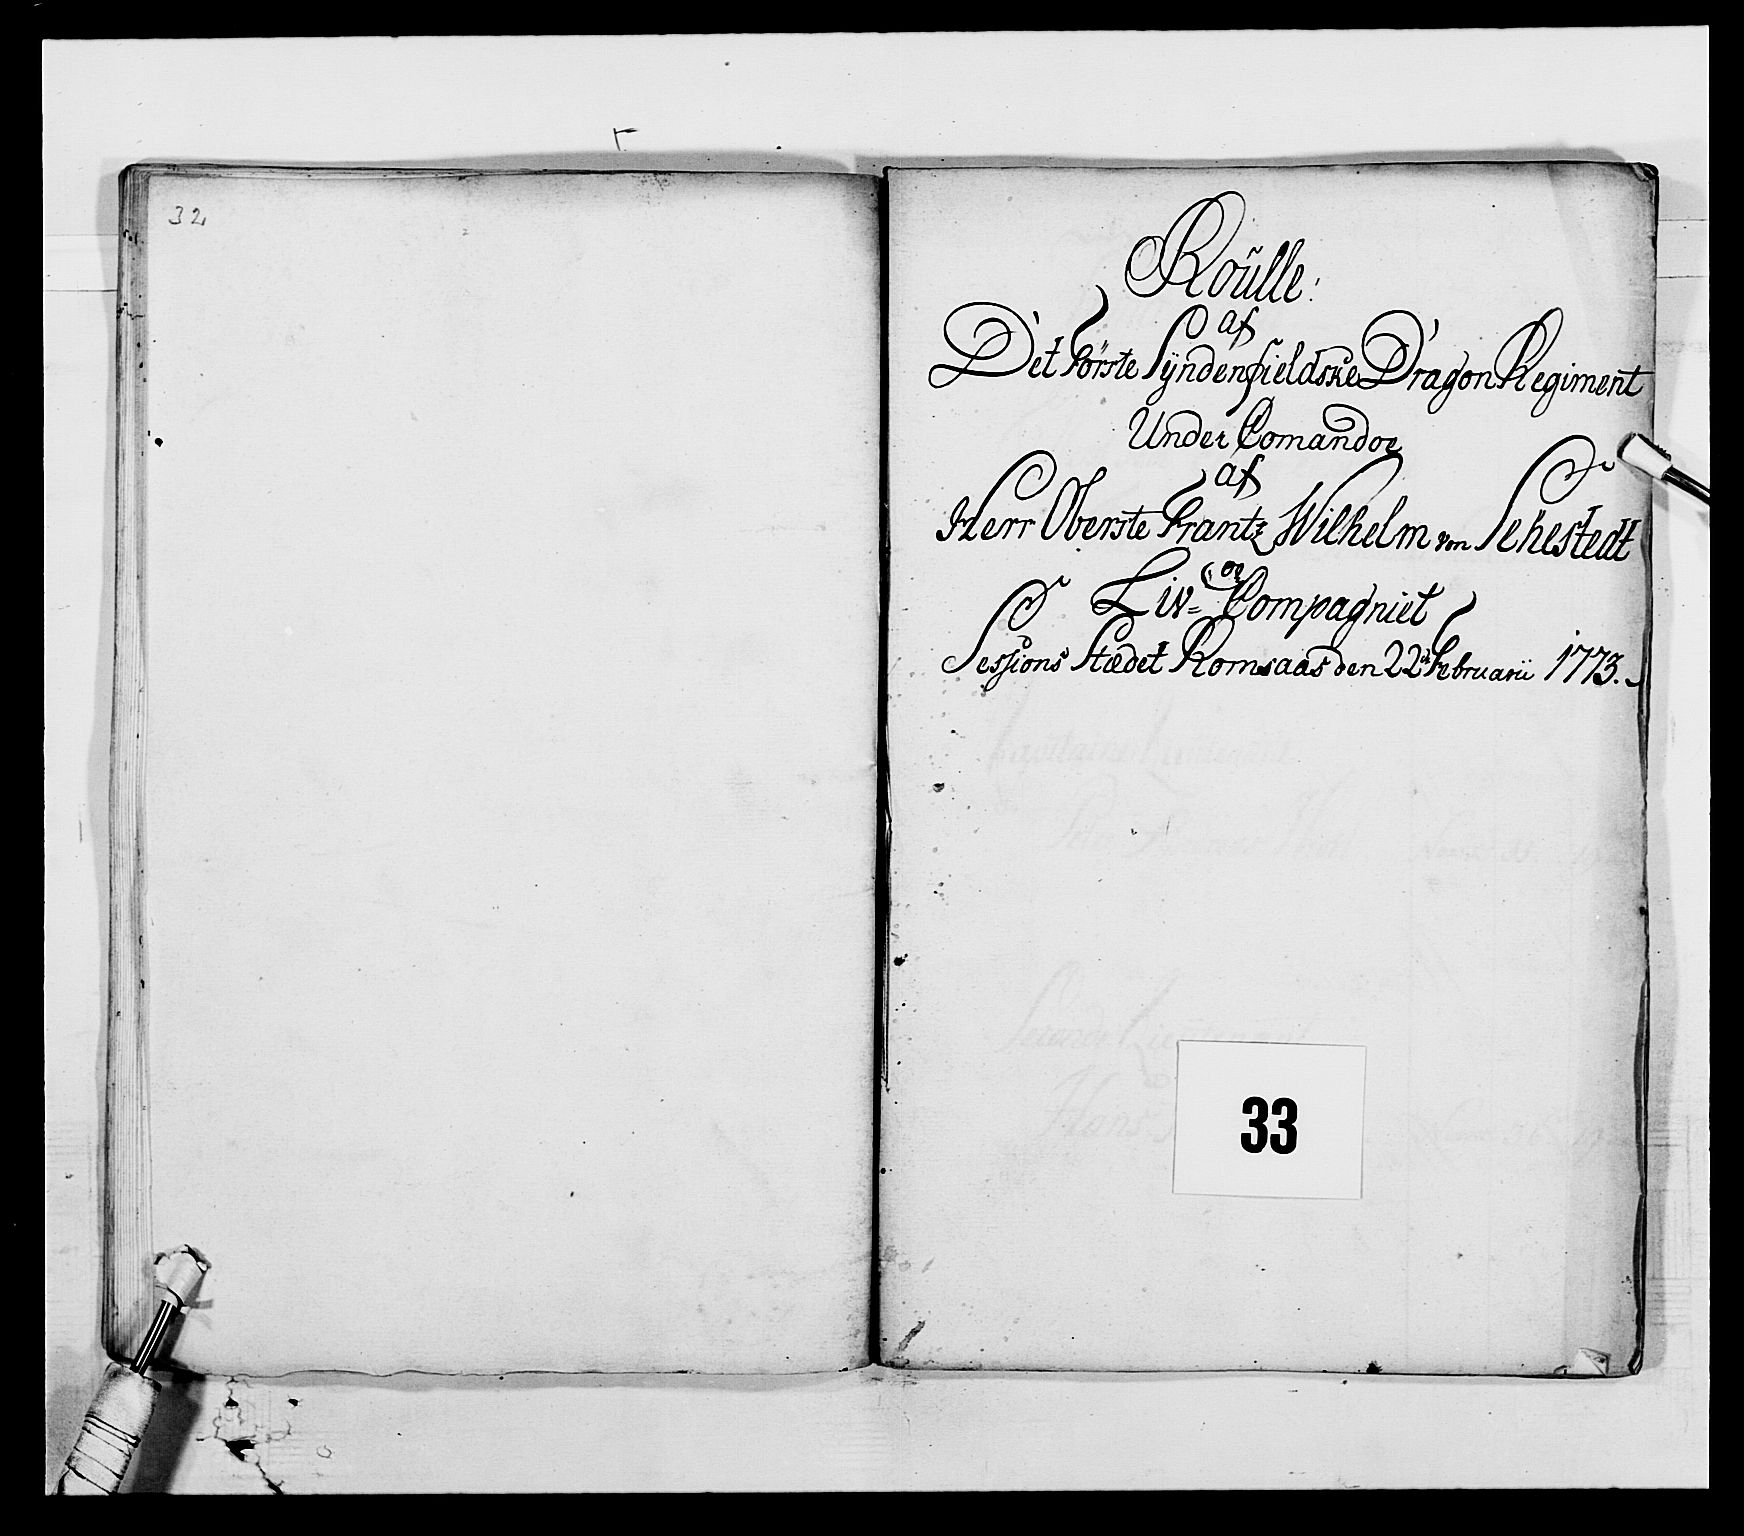 32
Roülle:
af
Det Förste Syndenfieldske Dragon Regiment
Under Comandoe
af
Herr Oberste Frantz Wilhelm von Sehestedt
oe
Liv= Compagniet
Sessions Stædet Romsaas den 22de Februarii 1773.
33